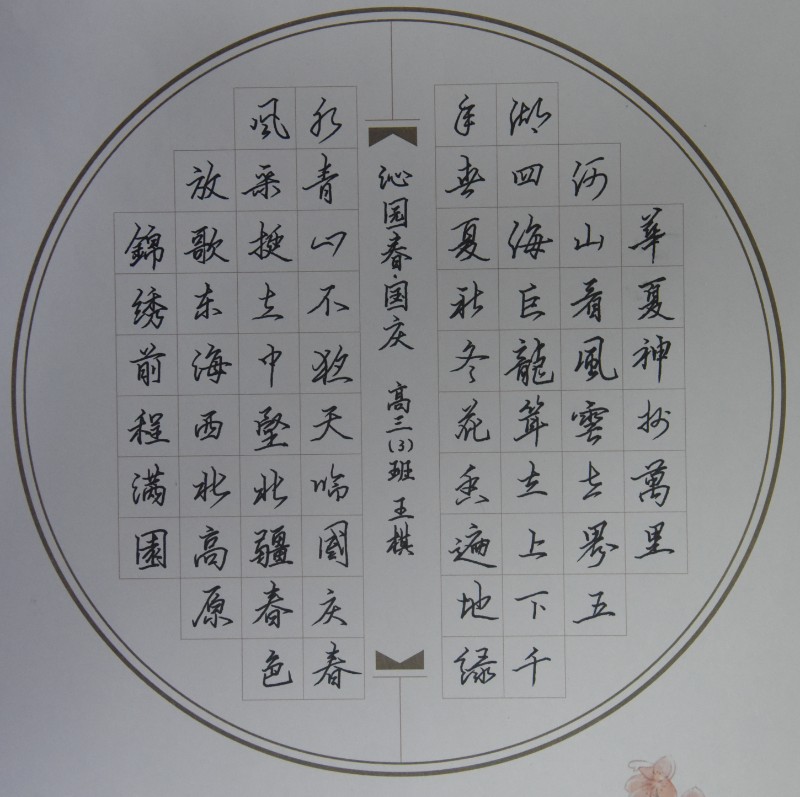 華夏神州萬里
河山看風雲世界五
湖四海巨龍聳立上下千
年春夏秋冬花香遍地绿
沁园春·国庆 高三(3)班 王棋
水青山不夜天临國庆春
風采挺立中堅北疆春色
放歌东海西北高原
錦绣前程满園